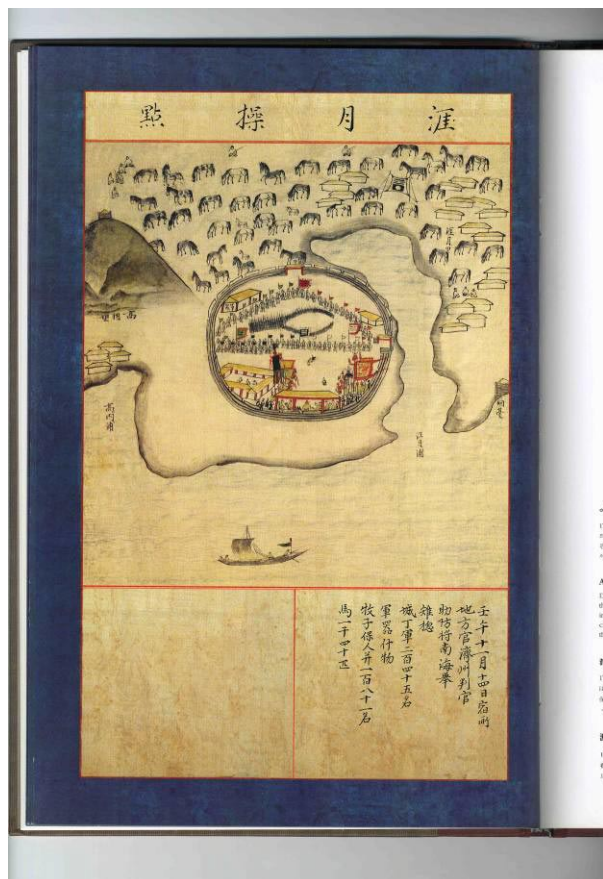 涯月操點
高內浦
涯月浦
壬午十一月十四日宿所
地方官濟州判官
助防將南海擧
雉摠
城丁軍二百四十五名
軍器什物
牧子保人幷一百八十一名
馬一千四十匹